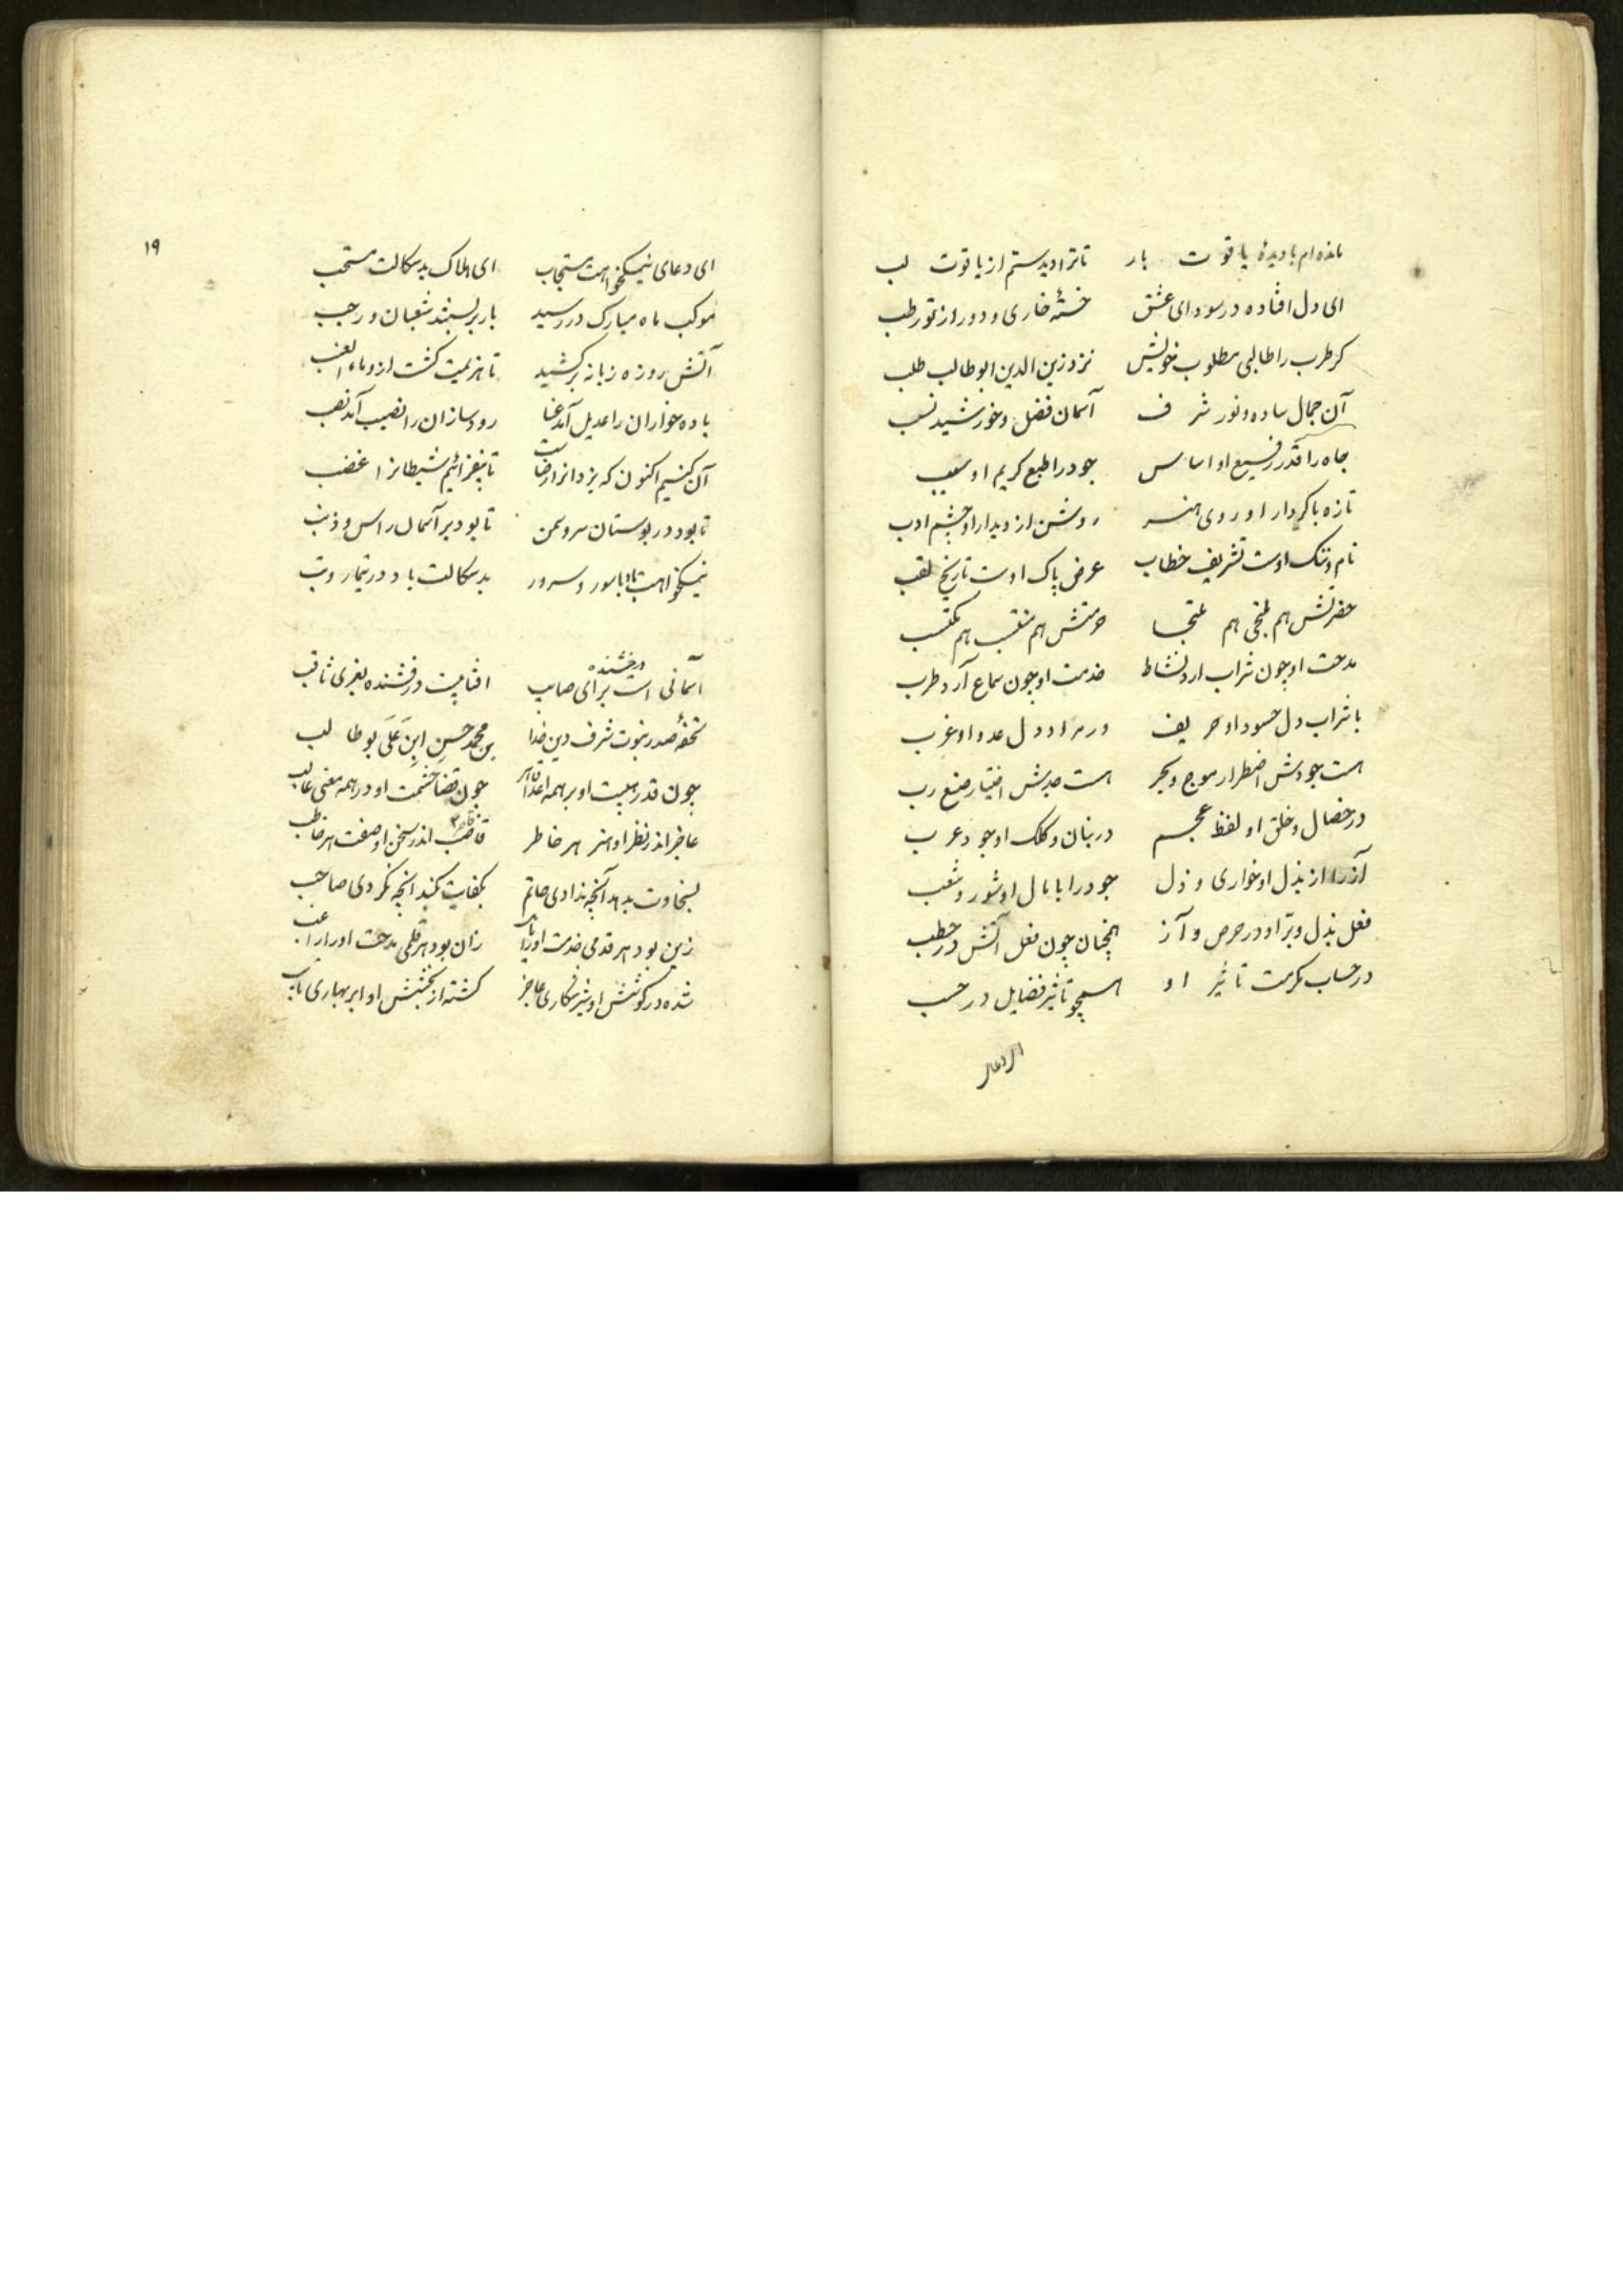 مانده‌ام با دیدهٔ یاقوت بار تا ترا دیدستم از یاقوت لب
ای دل افتاده در سودای عشق خستهٔ خاری و دور از تو رطب
کر طرب را طالبی مطلوب خویش نزد زین الدین ابوطالب طلب
آن جمال ساده و نور شرف آسمان فضل و خورشید نسب
جاه را قدر رفیع او اساس جود را طبع کریم او سبب
تازه با کردار او روی هنر روشن از دیدار او چشم ادب
نام و ننک اوست تشریف خطاب عرض پاک اوست تاریخ لقب
حضرتش هم ملتجی هم ملتجا حرمتش هم منتسب هم مکتسب
مدحت او چون شراب ارد نشاط خدمت او چون سماع آرد طرب
با شراب دل حسود او حریف در دل عدو او غرب
هست جودش اضطرار موج و بحر هست جدش اختیار صنع رب
در خصال و خلق او لفظ عجم در بنان و کلک او جود عرب
آز را از بذل او خواری و ذل جود را با مال او شور و شغب
فعل بذل و بر او در حرص و آز همچنان چون فعل آتش در حطب
در حساب مکرمت تاثیر او همچو تاثیر فضایل در حسب
ای دعای
۱۹
ای دعای نیکخواهت مستجاب ای هلاک بدسکالت مستحب
موکب ماه مبارک در رسید بار بر بستند شعبان و رجب
آتش روزه زبانه برکشید تا هزیمت کشت ازو ماء العنب
باده خواران را عدیل آمد عنا رودسازان را نصیب آمد نصب
آن کنیم اکنون که یزدانراست رضا تا بیفزائیم شیطانرا غضب
تا بود در بوستان سرو سمن تا بود بر آسمان راس و ذنب
نیکخواهت باد با سور و سرور بدسکالت باد در تیمار و تب
درخشنده
آسمانی است برای صایب افتابیست درفشنده بعزی ثاقب
تحفهٔ صدر نبوت شرف دین خدا بن محمد حسن ابن علی بوطالب
چون قدر هیبت او بر همه اعدا قاهر چون قضا حشمت او در همه معنی غالب
عاجز اندر نظر او هنر هر خاطر قاصر اندر سخن او صفت هر خاطب
بسخاوت بدهد آنچه ندادی حاتم بکفایت کند انچه نکردی صاحب
زین بود هر قدمی خدمت او را زان بود هر قلمی مدحت او را راغب
شده در کوشش او شیر شکاری عاجز کشته از بخشش او ابر بهاری تایب